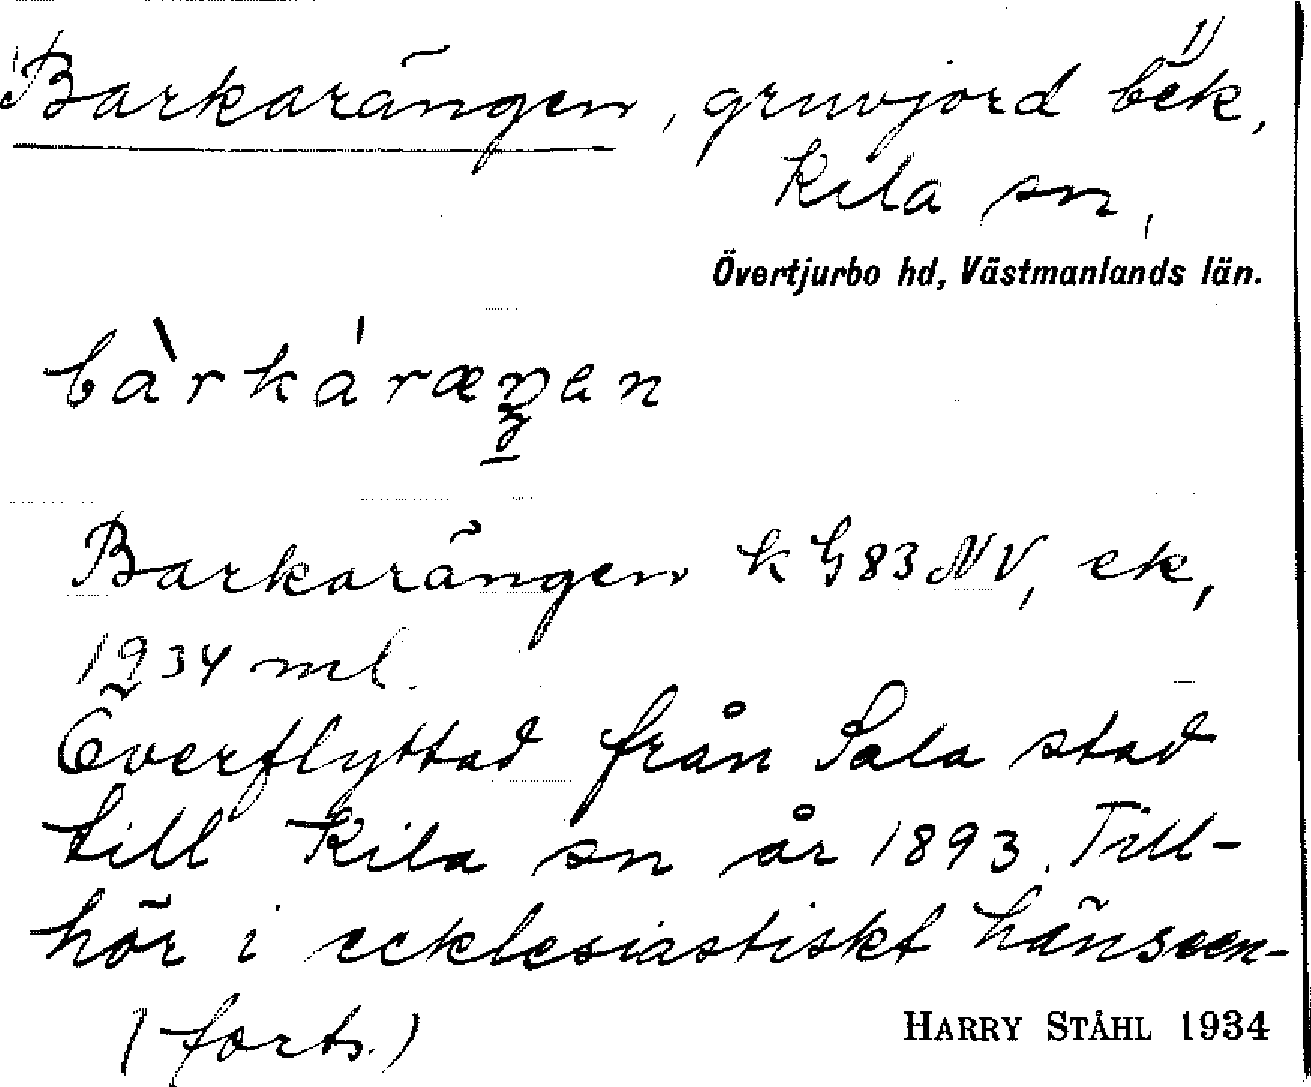 Barkarängen, gruvjord bek,
Kila sn,
Övertjurbo hd, Västmanlands län.
bàrkáræŋen
Barkarängen k G 83 NV, ek,
1934 ml.
Överflyttad från Sala stad
till Kila sn år 1893. Till-
hör i ecklesiastiskt hänseen-
(forts.)
HARRY STÅHL 1934